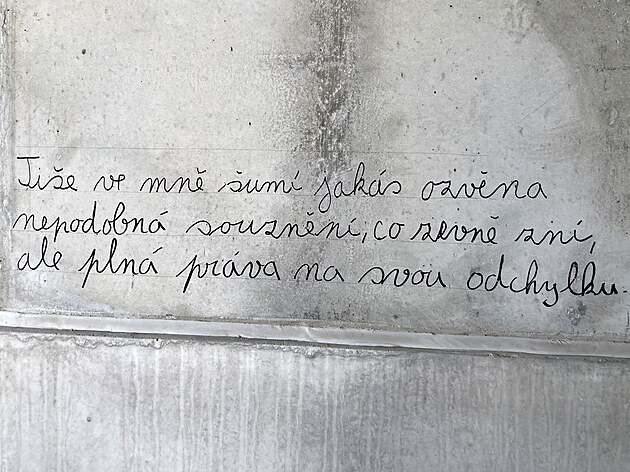 Tiše ve mně šumí jakás ozvěna
nepodobná souznění, co zevně zní,
ale plná práva na svou odchylku.